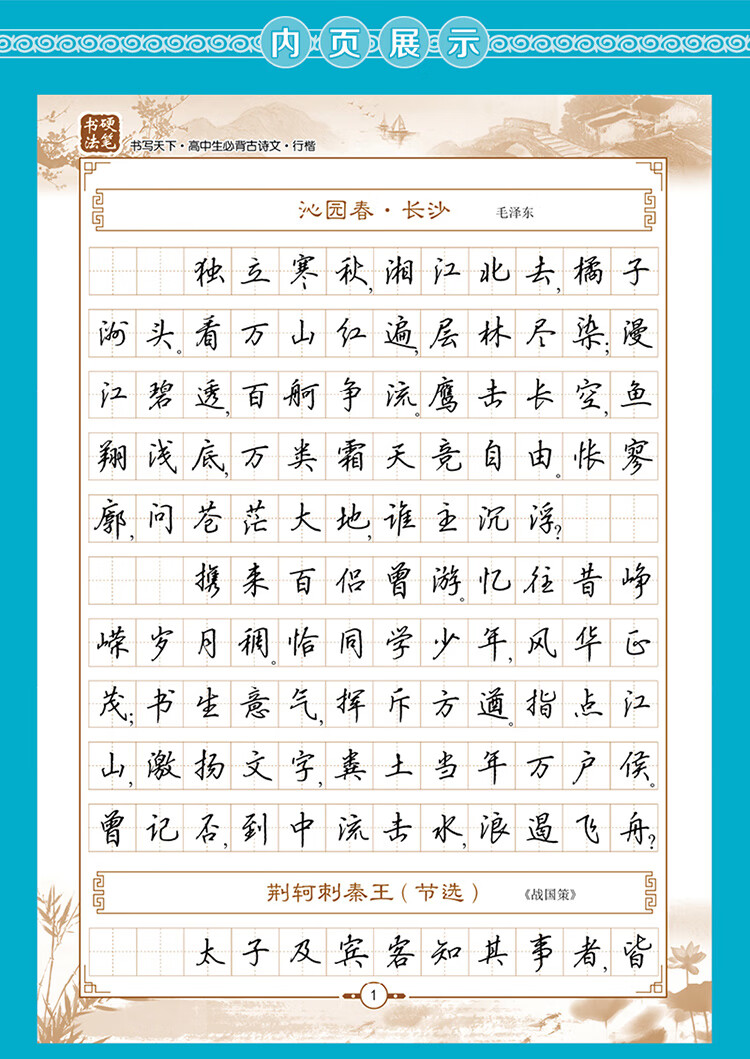 内页展示
硬笔书法
书写天下·高中生必背古诗文·行楷
沁园春·长沙 毛泽东
独立寒秋,湘江北去,橘子
洲头。看万山红遍,层林尽染;漫
江碧透,百舸争流。鹰击长空,鱼
翔浅底,万类霜天竞自由。怅寥
廓,问苍茫大地,谁主沉浮?
携来百侣曾游。忆往昔峥
嵘岁月稠。恰同学少年,风华正
茂;书生意气,挥斥方遒。指点江
山,激扬文字,粪土当年万户侯。
曾记否,到中流击水,浪遏飞舟?
荆轲刺秦王(节选) 《战国策》
太子及宾客知其事者,皆
1